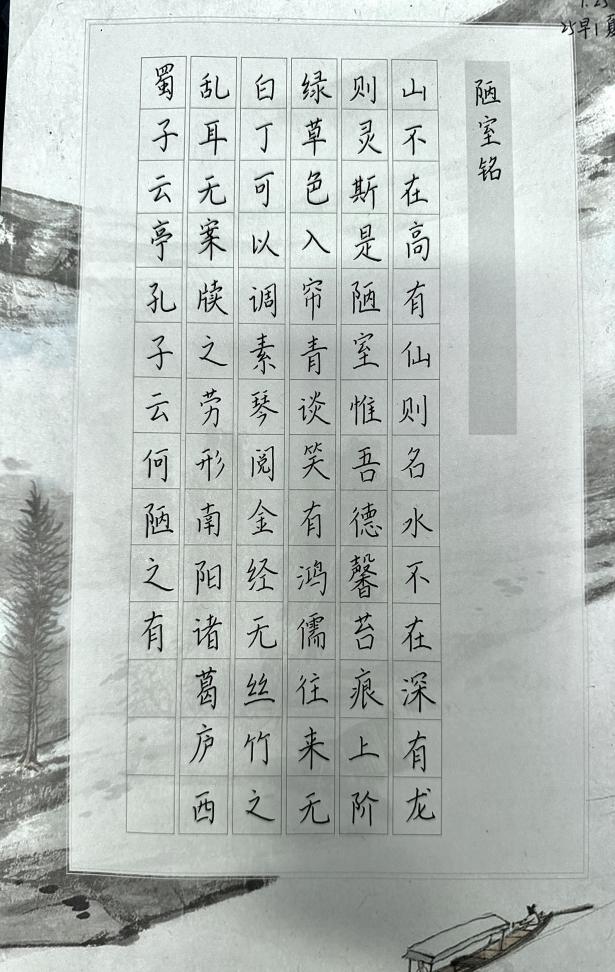 陋室铭
山不在高有仙则名水不在深有龙
则灵斯是陋室惟吾德馨苔痕上阶
绿草色入帘青谈笑有鸿儒往来无
白丁可以调素琴阅金经无丝竹之
乱耳无案牍之劳形南阳诸葛庐西
蜀子云亭孔子云何陋之有